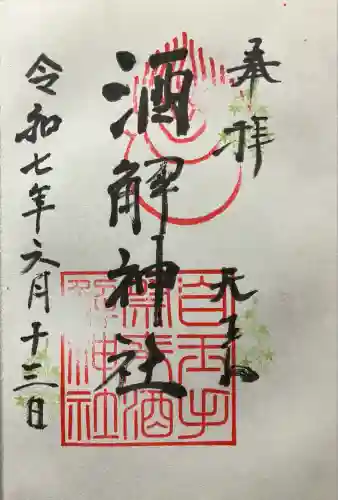 奉拝
天王山
酒解神社
令和七年六月十三日
自玉手
祭来酒
解神社